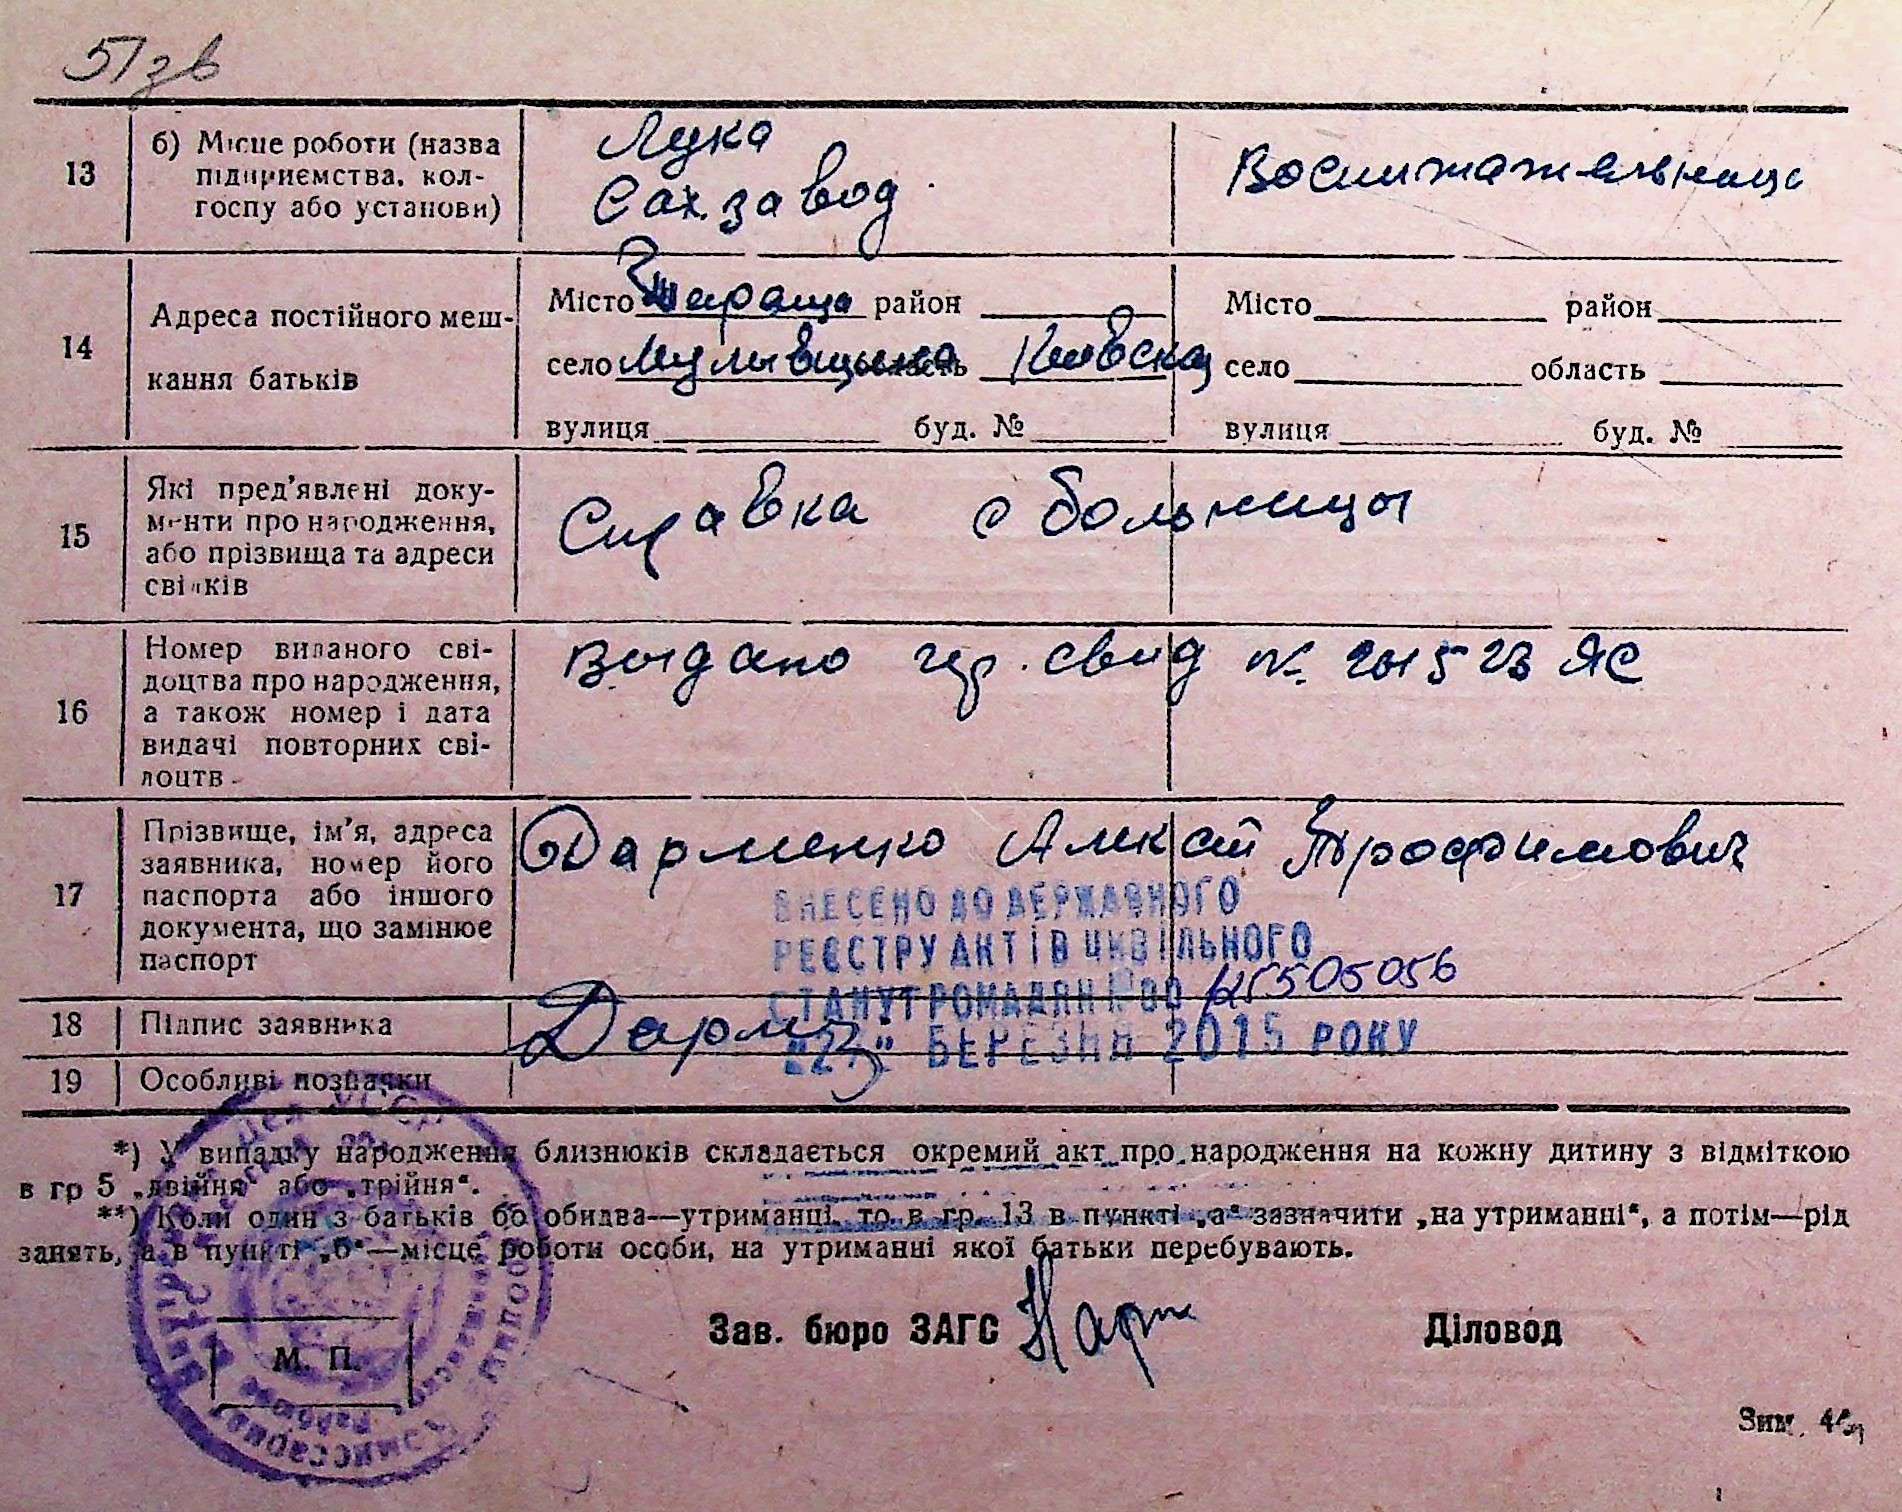 51 зв
13
б) Місце роботи (назва
підприємства, кол-
госпу або установи)
Лука
Сах. завод
Воспитательница
14
Адреса постійного меш-
кання батьків
Місто Тараща район
село область Киевская
вулиця буд. №
Місто район
село область
вулиця буд. №
15
Які пред'явлені доку-
менти про народження,
або прізвища та адреси
свідків
Справка с больницы
16
Номер виданого сві-
доцтва про народження,
а також номер і дата
видачі повторних сві-
доцтв
Выдано гер. свид №. 201523 ЯС
17
Прізвище, ім'я, адреса
заявника, номер його
паспорта або іншого
документа, що замінює
паспорт
Дарменко Алексей Трофимович
ВНЕСЕНО ДО ДЕРЖАВНОГО
РЕЄСТРУ АКТІВ ЦИВІЛЬНОГО
СТАНУ ГРОМАДЯН №00125505056
"23" БЕРЕЗНЯ 2015 РОКУ
18
Підпис заявника
19
Особливі позначки
*) У випадку народження близнюків складається окремий акт про народження на кожну дитину з відміткою
в гр 5 „двійня" або „трійня".
**) Коли один з батьків бо обидва—утриманці, то в гр. 13 в пункті „а" зазначити „на утриманні", а потім—рід
занять, а в пункті „б"—місце роботи особи, на утриманні якої батьки перебувають.
Зав. бюро ЗАГС
Діловод
М. П.
УССР
Зим.